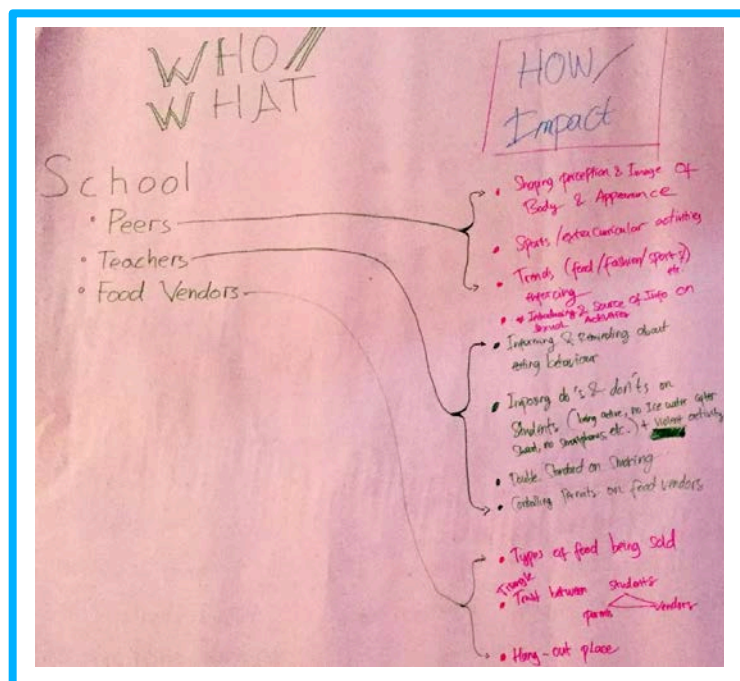 WHO//
WHAT
HOW/
Impact
School
• Peers
• Teachers
• Food Vendors
• Shaping perception & Image of
Body & Appearance
• Sports/extracurricular activities
• Trends (food/fashion/sport?)
etc.
enforcing
• Introducing & Source of Info on
sexual activities
• Informing & Reminding about
eating behaviour
• Imposing do's & don'ts on
Students (being active, no Ice water after
no smartphones, etc.) + violent activity
• Double Standard on Smoking
• Controlling Permits on food vendors
• Types of food being sold
Triangle
• Trust between students
vendors
• Hang-out place